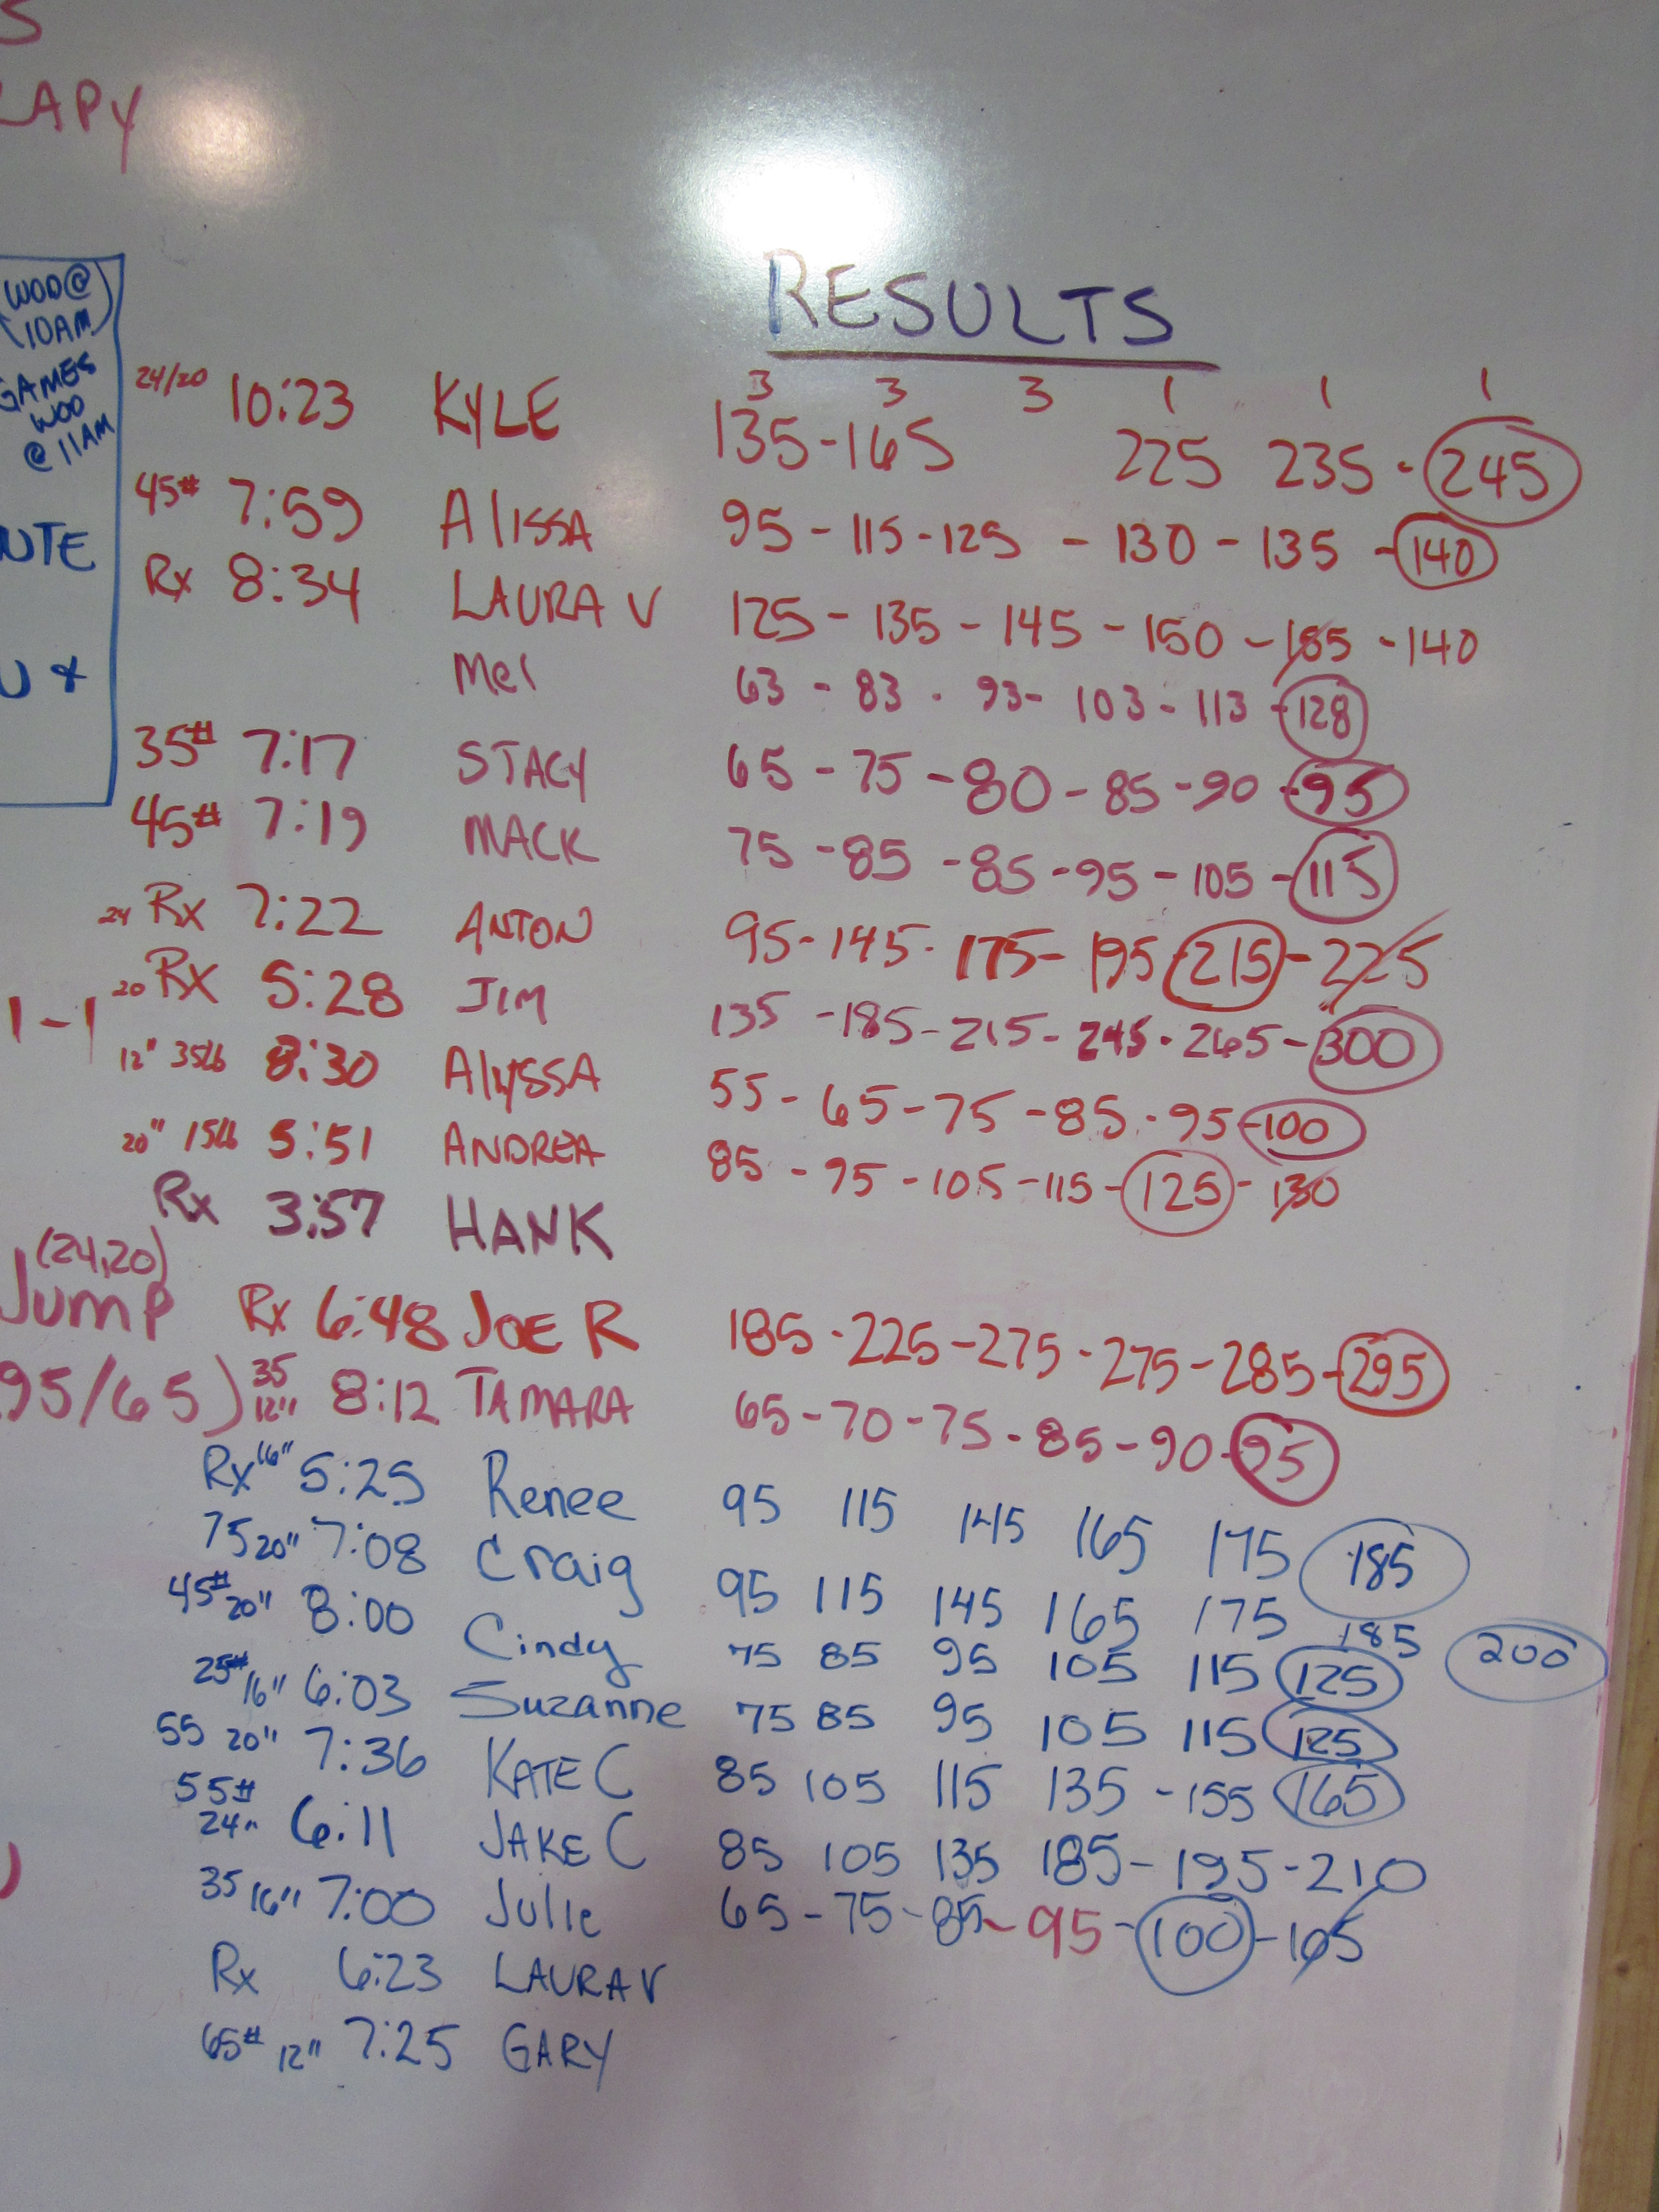 S
LAPY
RESULTS
WOD@
10AM
GAMES
WOD
@ 11AM
NUTE
U &
3 3 3 1 1 1
24/20 10:23 KYLE 135-165 225 235 - 245
45# 7:59 ALISSA 95 - 115 - 125 - 130 - 135 - 140
Rx 8:34 LAURA V 125 - 135 - 145 - 150 - 185 - 140
Mel 63 - 83 - 93 - 103 - 113 - 128
35# 7:17 STACY 65 - 75 - 80 - 85 - 90 - 95
45# 7:19 MACK 75 - 85 - 85 - 95 - 105 - 115
24 Rx 7:22 ANTON 95 - 145 - 175 - 195 - 215 - 225
1-1 20 Rx 5:28 JIM 135 - 185 - 215 - 245 - 265 - 300
12" 35lb 8:30 ALYSSA 55 - 65 - 75 - 85 - 95 - 100
20" 15lb 5:51 ANDREA 85 - 95 - 105 - 115 - 125 - 130
Rx 3:57 HANK
(24,20)
Jump Rx 6:48 JOE R 185 - 225 - 275 - 275 - 285 - 295
95/65) 35 12" 8:12 TAMARA 65 - 70 - 75 - 85 - 90 - 95
Rx 16" 5:25 Renee 95 115 145 165 175 185
75 20" 7:08 Craig 95 115 145 165 175 185 200
45# 20" 8:00 Cindy 75 85 95 105 115 125
25# 16" 6:03 Suzanne 75 85 95 105 115 125
55 20" 7:36 KATE C 85 105 115 135 - 155 165
55# 24" 6:11 JAKE C 85 105 135 185 - 195 - 210
35 16" 7:00 Julie 65 - 75 - 85 - 95 - 100 - 105
Rx 6:23 LAURA V
65# 12" 7:25 GARY